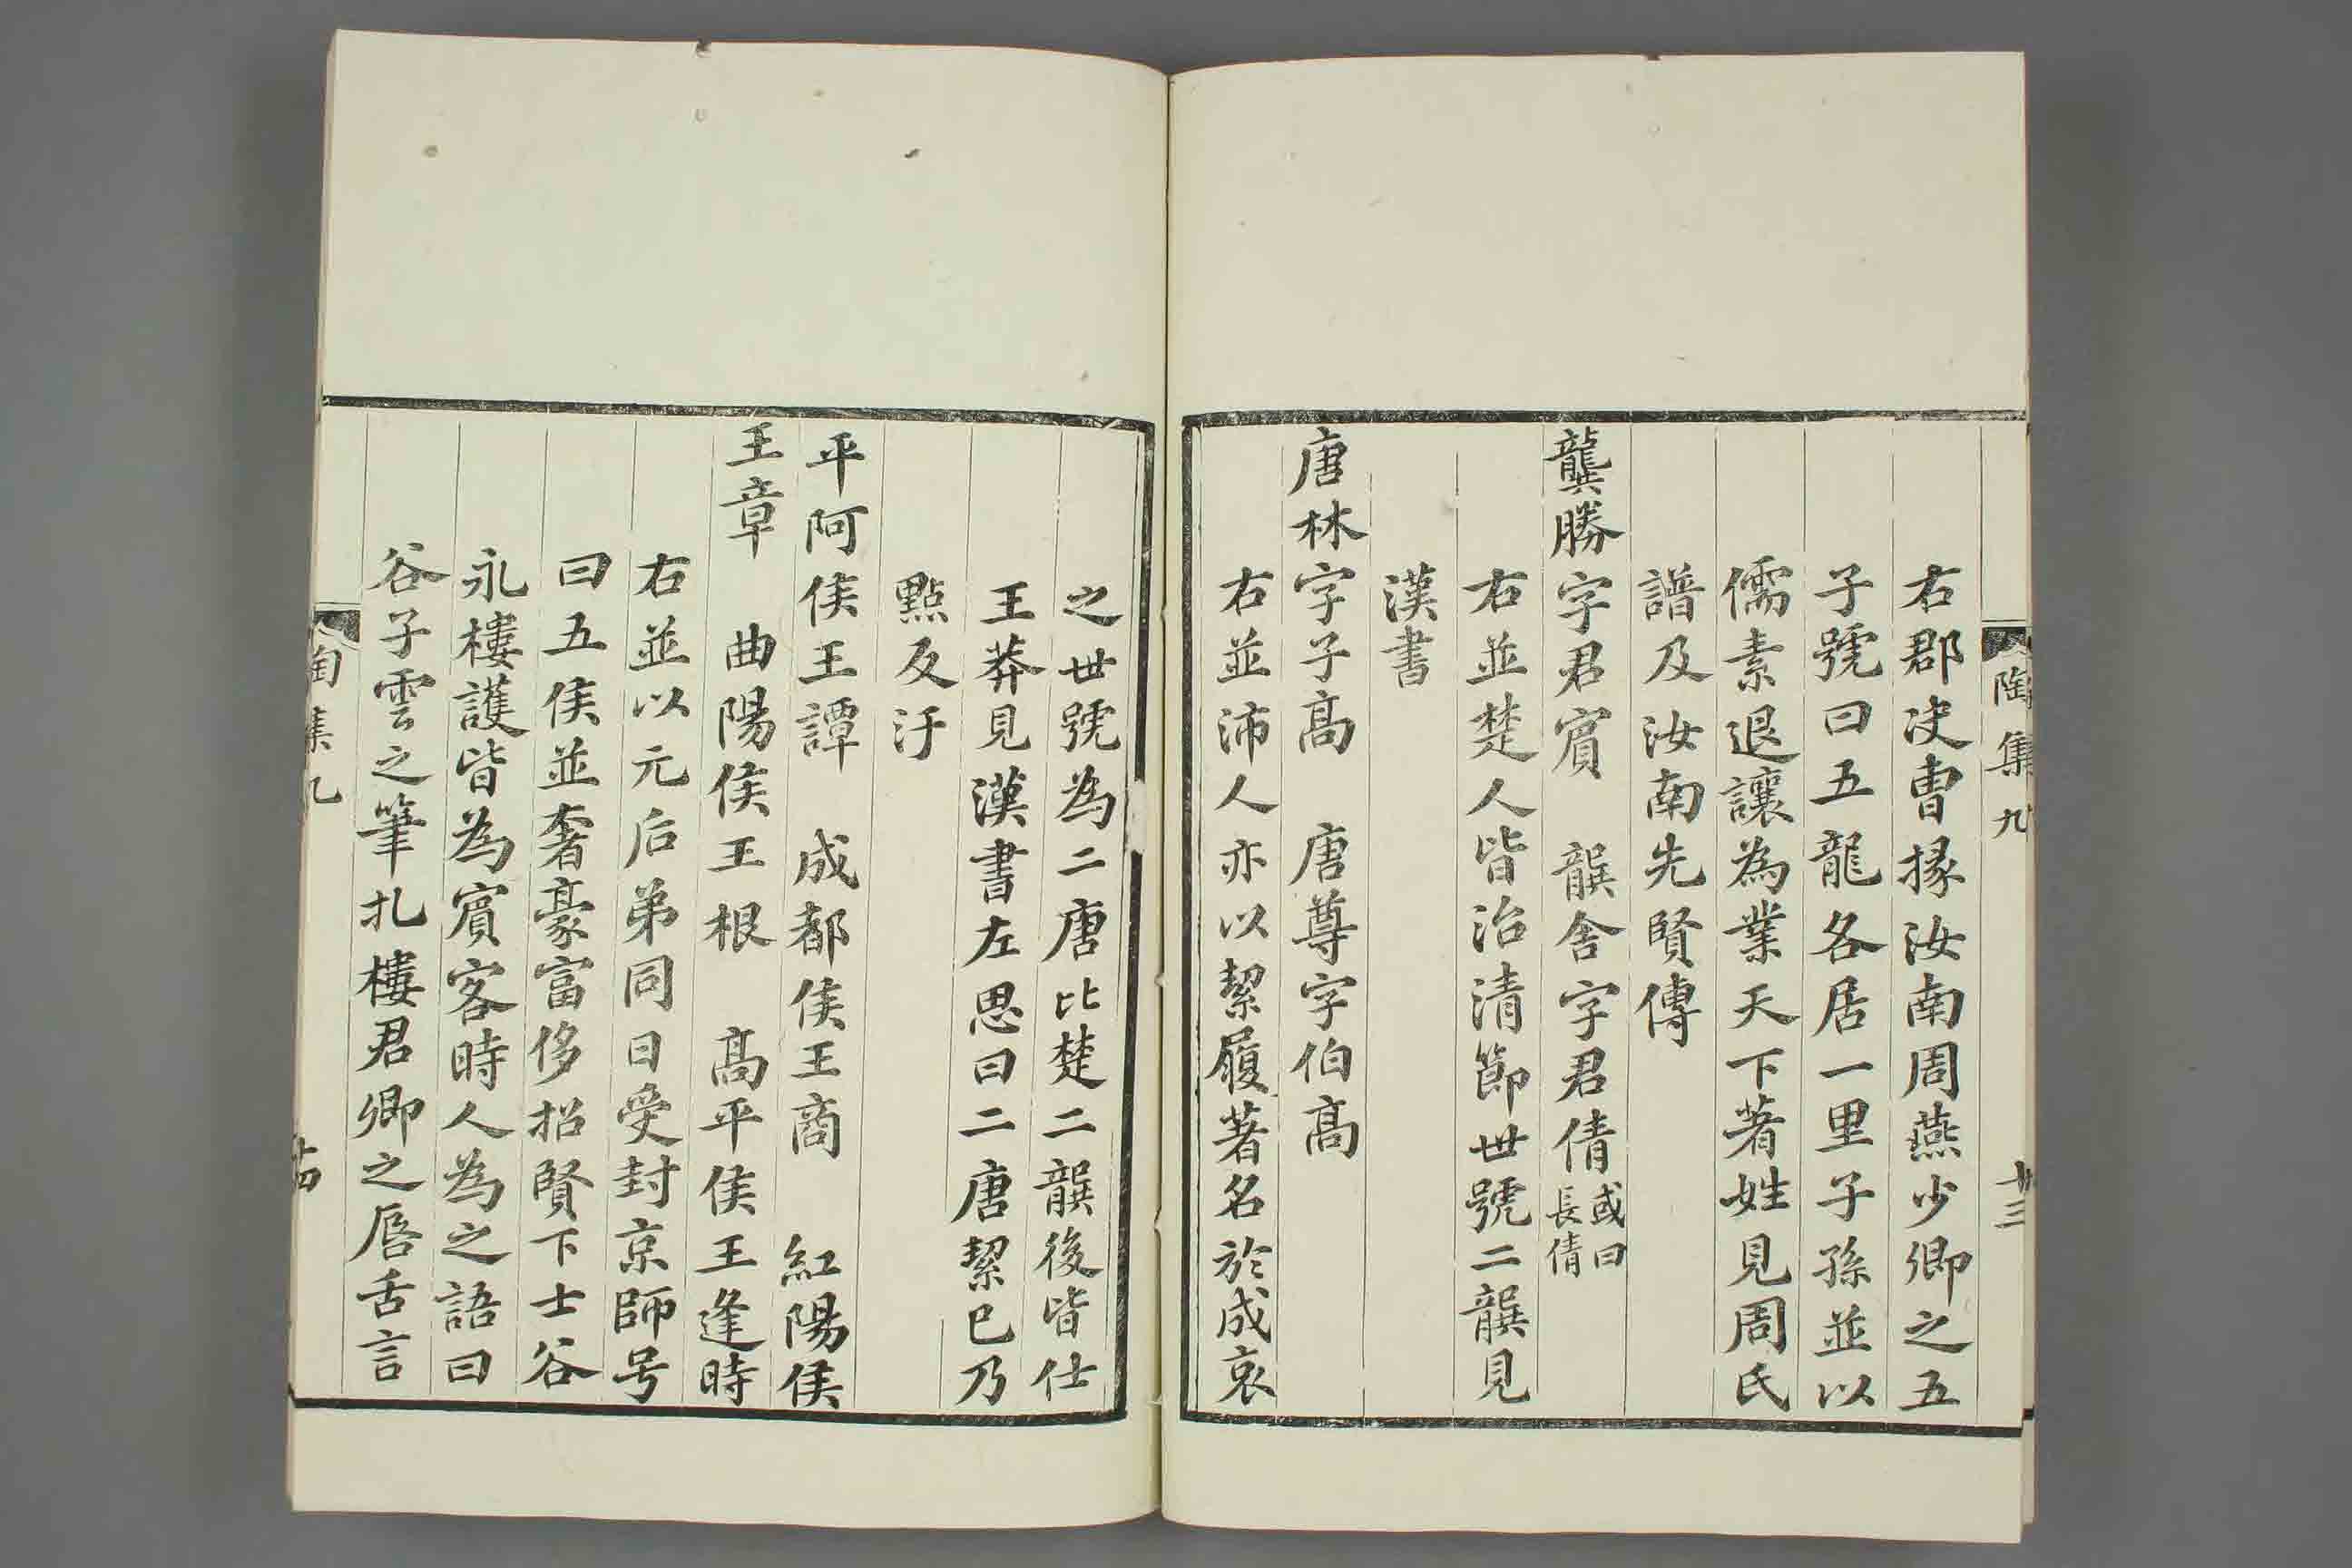 陶集九
十三
右郡决曹掾汝南周燕少卿之五
子號曰五龍各居一里子孫並以
儒素退讓為業天下著姓見周氏
譜及汝南先賢傳
龔勝字君賔　龔舍字君倩或曰長倩
右並楚人皆治清節世號二龔見
漢書
唐林字子髙　唐尊字伯髙
右並沛人亦以絜履著名於成哀
之世號為二唐比楚二龔後皆仕
王莽見漢書左思曰二唐絜已乃
點反汙
平阿侯王譚　成都侯王商　紅陽侯
王章　曲陽侯王根　髙平侯王逢時
右並以元后弟同日受封京師号
曰五侯並奢豪富侈招賢下士谷
永樓護皆為賔客時人為之語曰
谷子雲之筆札樓君卿之唇舌言
陶集九
十四